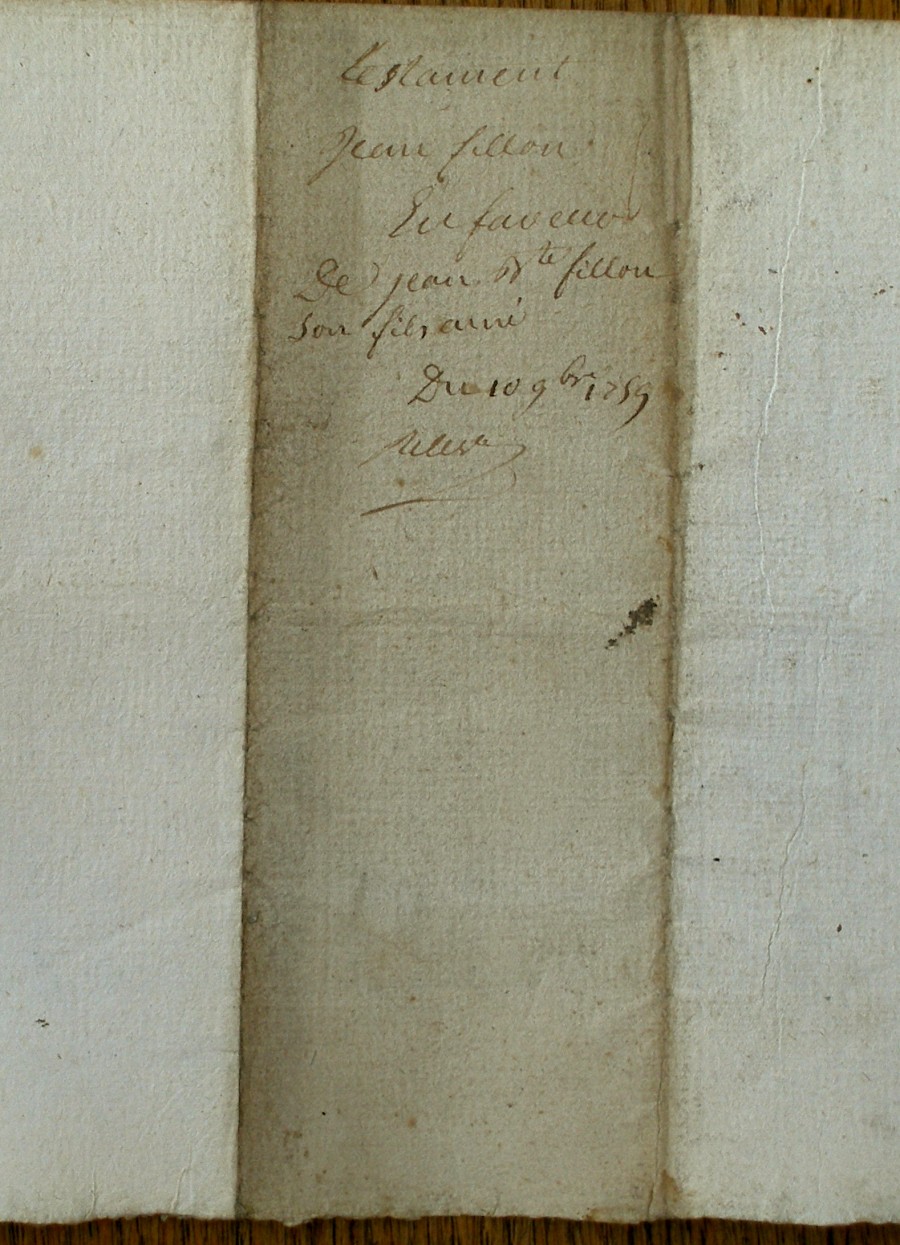 testament
Jean fillon
En faveur
De jean Bte fillon
son fils ainé
Du 10 9bre 1759